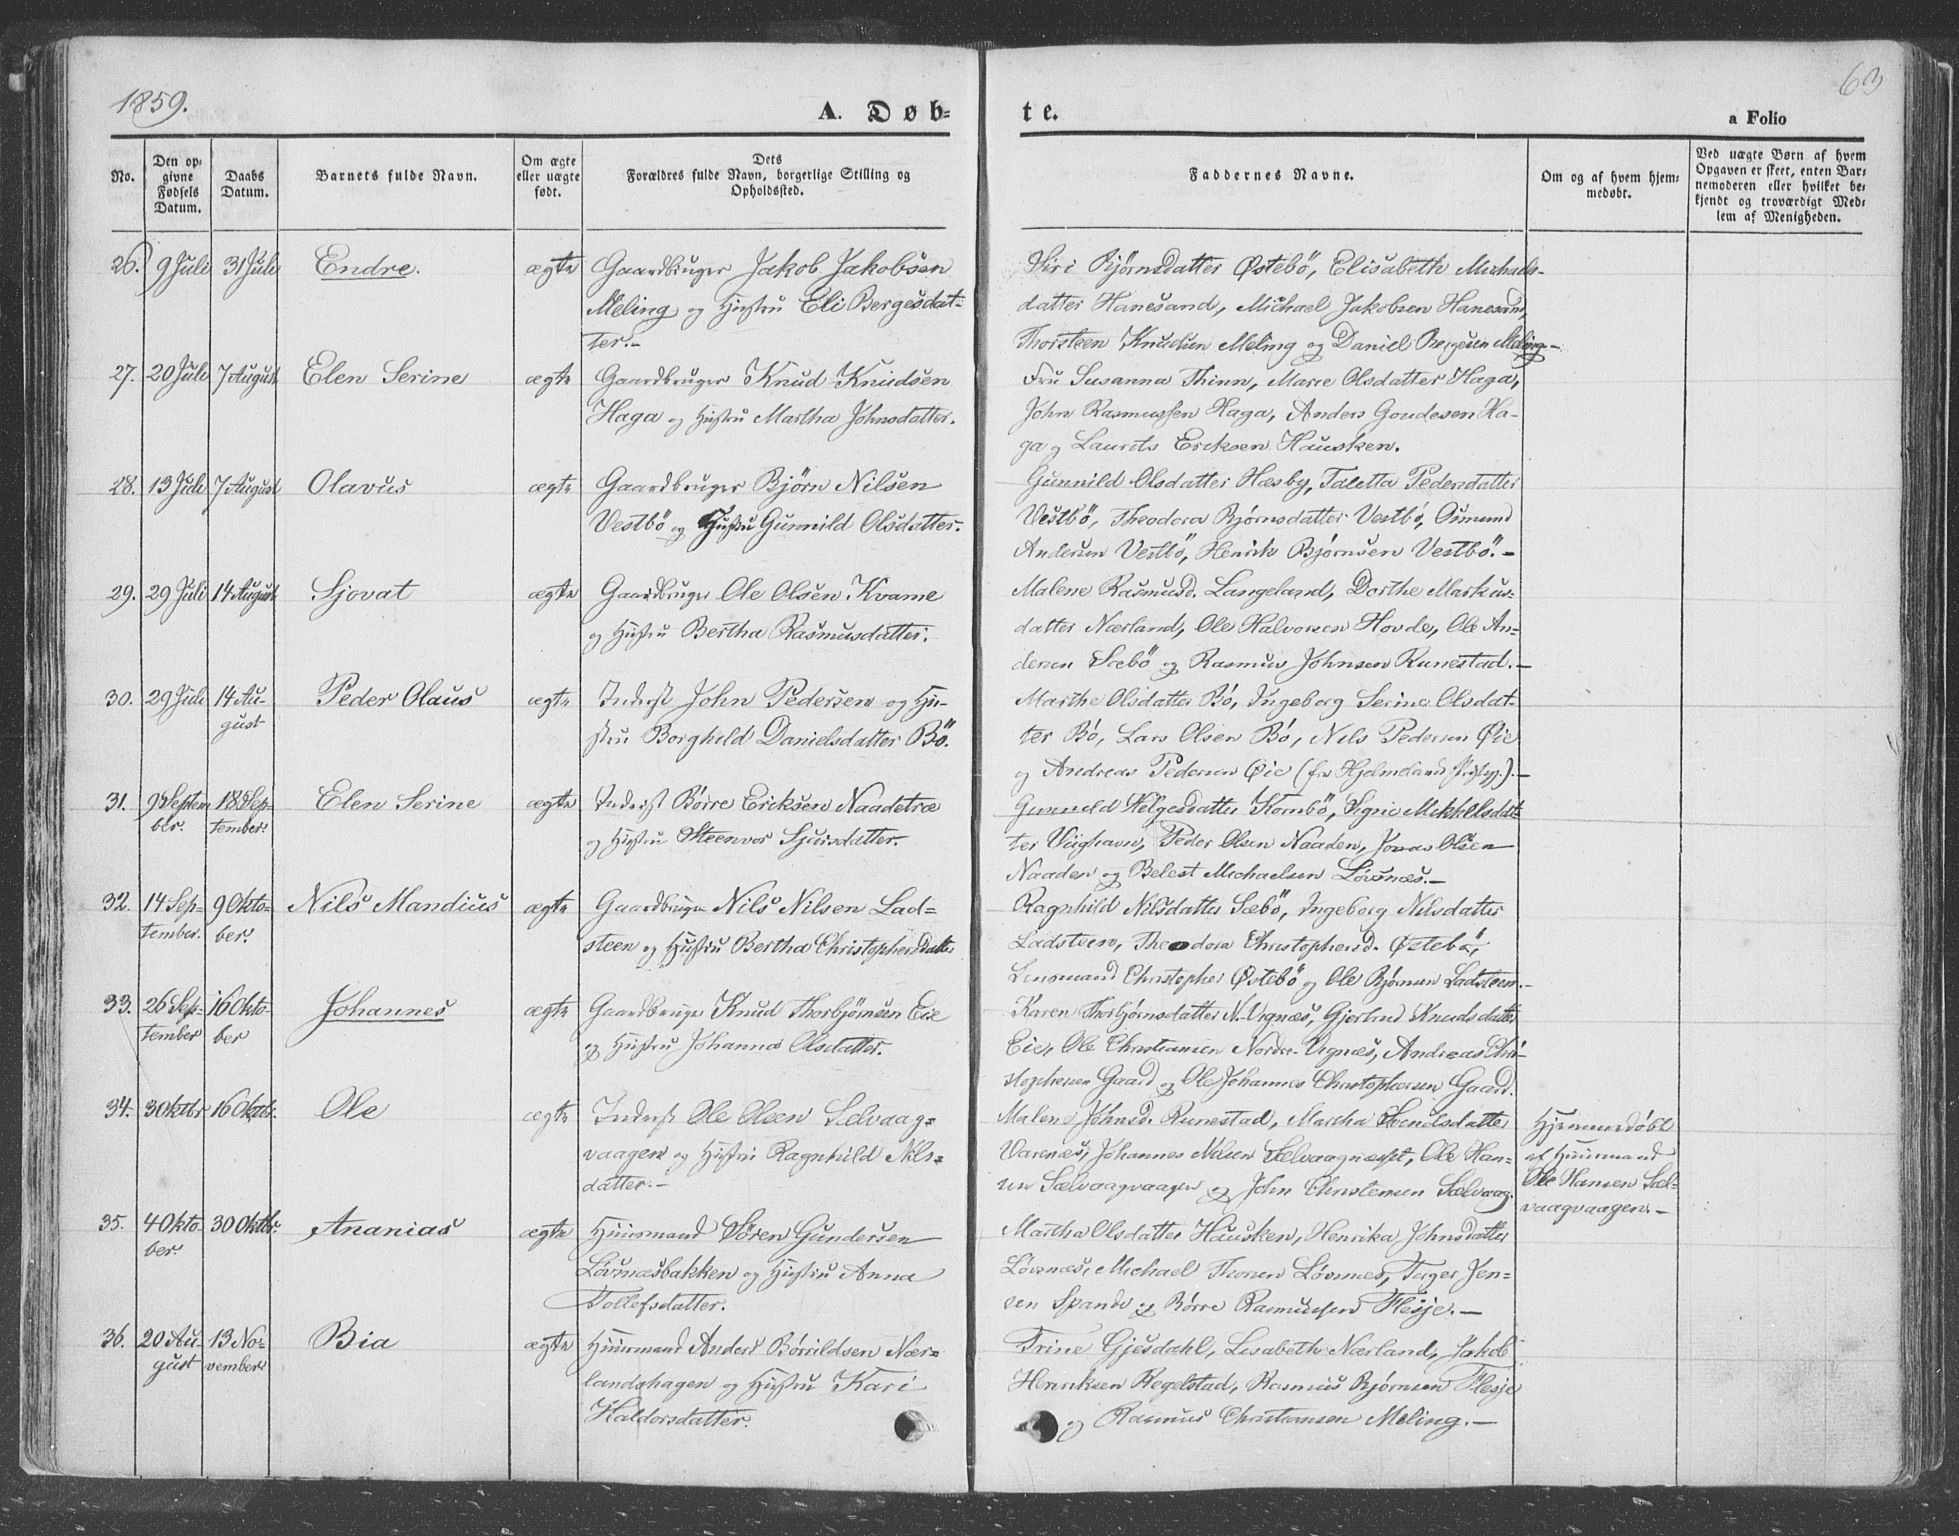 1859.
A. Døb-
te.
63
a Folio
No.
Den op-
givne
Fødsels
Datum.
Daabs
Datum.
Barnets fulde Navn.
Om ægte
eller uægte
født.
Dets
Forældres fulde Navn, borgerlige Stilling og
Opholdssted.
Faddernes Navne.
Om og af hvem hjem-
medøbt.
Ved uægte Børn af hvem
Opgaven er skeet, enten Bar-
nemoderen eller hvilket be-
kjendt og troværdigt Med-
lem af Menigheden.
26. 9 Juli 31 Juli Endre. ægte Gaardbruger Jakob Jakobsen
Meling og Hustru Eli Bergesdat-
ter.-
Siri Bjørnsdatter Østebö, Elisabeth Michaels-
datter Hanesand, Michael Jakobsen Hanesand,
Thorsteen Knudsen Meling og Daniel Bergesen Meling-
27. 20 Juli 7 August Elen Serine ægte Gaardbruger Knud Knudsen
Haga og Hustru Martha Johnsdatter.
Fru Susanna Thinn, Marie Olsdatter Haga,
John Rasmussen Haga, Anders Goudesen Ha-
ga og Laurits Eriksen Hausken.
28. 13 Juli 7 August Olavus ægte Gaardbruger Bjørn Nilsen
Vestbö og Hustru Gunnild Olsdatter.
Gunnild Olsdatter Hæsby, Taletta Pedersdatter
Vestbö, Theodora Bjørnsdatter Vestbö, Osmund
Andersen Vestbö, Henrik Bjørnsen Vestbö.-
29. 29 Juli 14 August Sjovat ægte Gaardbruger Ole Olsen Kvame
og Hustru Bertha Rasmusdatter.
Malene Rasmusd. Langeland, Dorthe Markus-
datter Nærland, Ole Halvorsen Hovde, Ole An-
dersen Sæbö og Rasmus Johnsen Runestad.-
30. 29 Juli 14 Au-
gust Peder Olaus ægte Inderst John Pedersen og Hu-
stru Borghild Danielsdatter Bö.
Marthe Olsdatter Bö, Ingeborg Serine Olsdat-
ter Bö, Lars Olsen Bö, Nils Pedersen Øie
og Andreas Pedersen Øie (fra Hjelmelands Præstgj.).-
31. 9 Septem-
ber. 18 Sep-
tember. Elen Serine ægte Inderst Børre Eriksen Naadetræ
og Hustru Steenvor Sjursdatter.
Gunnild Helgesdatter Kornbö, Signe Mikkelsdat-
ter Viighavn, Peder Olsen Naaden, Jonas Olsen
Naaden og Belest Michaelsen Lövsnæs.-
32. 14 Sep-
tember. 9 Okto-
ber. Nils Mandius ægte Gaardbruger Nils Nilsen Lad-
steen og Hustru Bertha Christophersdatter
Ragnhild Nilsdatter Sæbö, Ingeborg Nilsdatter
Ladsteen, Theodora Christophersd. Østebö,
Lensmand Christopher Østebö og Ole Bjørnsen Ladsteen.-
33. 26 Sep-
tember 16 Okto-
ber Johannes ægte Gaardbruger Knud Thorbjørnsen Eie
og Hustru Johanna Olsdatter.
Karen Thorbjørnsdatter N-Vignæs, Gjertrud Knudsdatter
Eie, Ole Christiansen Nordre-Vignæs, Andreas Chri-
stophersen Gaard og Ole Johannes Christophersen Gaard.
34. 3 Oktbr 16 Oktbr. Ole ægte Inderst Ole Olsen Selvaag-
vaagen og Hustru Ragnhild Nils-
datter.-
Malene Johnsd. Runestad, Martha Svendsdatter
Varenæs, Johannes Nilsen Sælvaagnæsset, Ole Han-
sen Sælvaagvaagen og John Christensen Sælvaag.
Hjemmedöbt
af Huusmand
Ole Hansen Sæl-
vaagvaagen.-
35. 4 Okto-
ber 30 Oktbr. Ananias ægte Huusmand Søren Gundersen
Lövsnæsbakken og Hustru Anna
Tollefsdatter.
Martha Olsdatter Hausken, Henrika Johnsdatter
Lövsnæs, Michael Thorsen Lövsnæs, Torger Jen-
sen Spande og Börre Rasmussen Flesje.-
36. 20 Au-
gust 13 No-
vember Bia ægte Huusmand Anders Børrildsen Nær-
landshagen og Hustru Kari
Haldorsdatter.
Trine Gjesdahl, Lisabeth Nærland, Jakob
Henriksen Regelstad, Rasmus Bjørnsen Flesje
og Rasmus Christiansen Meling.-